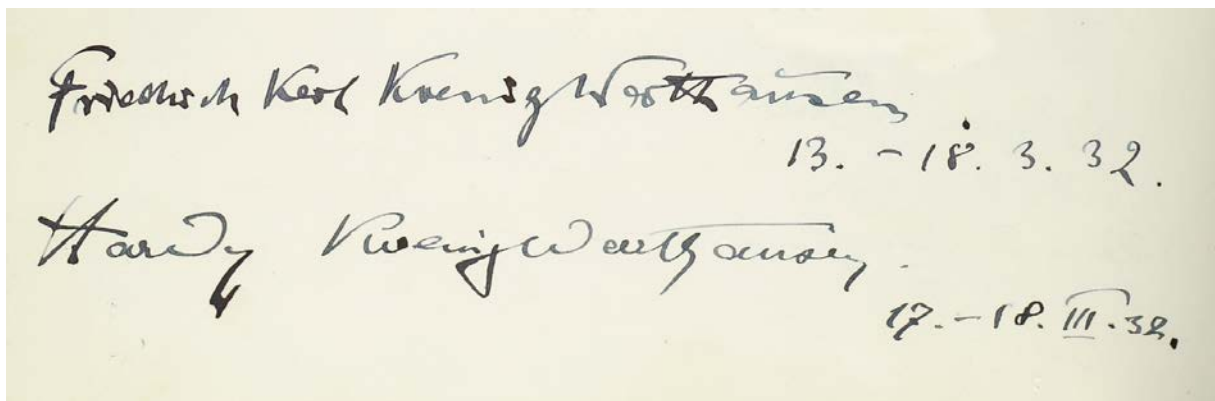 Friedrich Karl Koenig Warthausen
13. - 18. 3. 32.
Hardy Koenig Warthausen.
17. - 18. III. 32.